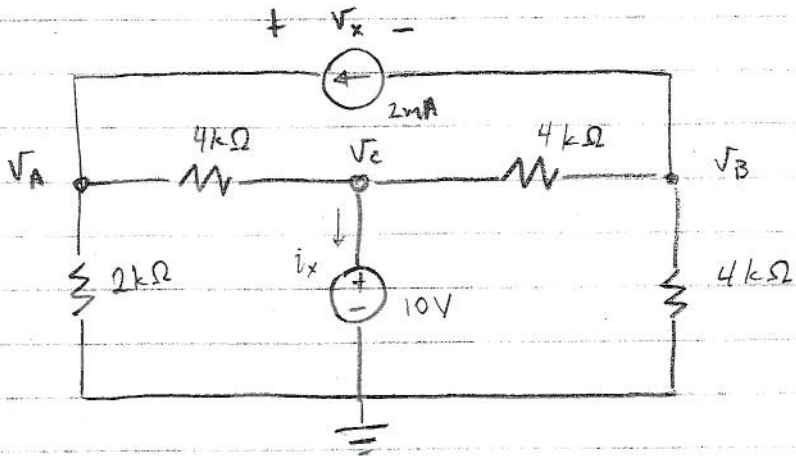 + Vx -
2mA
4kΩ
Vc
4kΩ
VA
VB
ix
2kΩ
+
-
10V
4kΩ